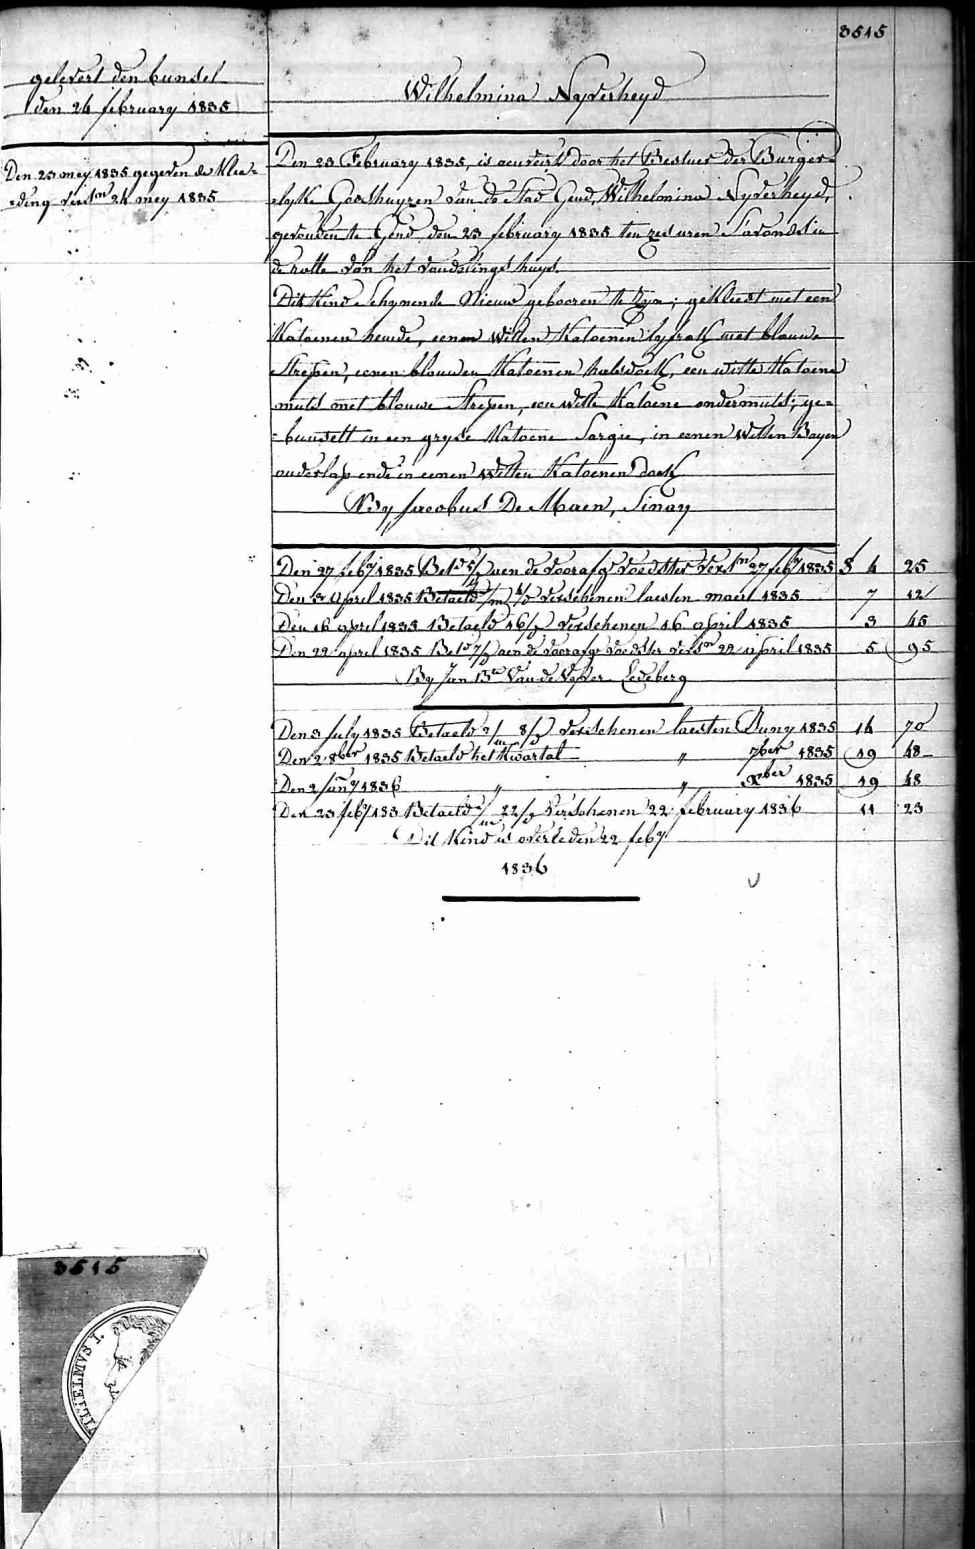 3515
gelevert den bundel
den 24 february 1835
Wilhelmina Nyverheyd
Den 23 mey 1835 gegeven de klee=
=ding verstn 24 mey 1835
Den 23 February 1835, is aenveird door het Bestuer der Burger=
=lyke Godshuyzen van de Stad Gend, Wilhelmina Nyverheyd,
gevonden te Gend den 23 february 1835 ten zes uren s'avonds in
de rolle van het vondelings huys.
Dit Kind schynende Nieuw gebooren te zyn; gekleed met een
Katoenen hemde, eenen witten Katoenen lyfrok met blauwe
strepen, eenen blauwen Katoenen halsdoek, een witte Katoene
muts met blauwe strepen, een witte Katoene ondermuts; ge=
=bunselt in een gryse Katoene Sargie, in eenen witten Bayen
onderlap ende in eenen witten Katoenen Doek
By Jacobus De Maen, Sinay
Den 27 feby 1835 Betd 5/ aen de voorafg voedster verstn 27 feby 1835 4 25
Den 3 april 1835 Betaeld verschenen laesten maert 1835 7 12
Den 16 april 1835 Betaeld 16/ verschenen 16 april 1835 3 45
Den 22 april 1835 Betd 7/ aen de voorafge voedster verstn 22 april 1835 5 95
By Jan Bte Van de Velde Ledeberg
Den 3 july 1835 Betaeld 2/m 8/ verschenen laesten Juny 1835 14 70
Den 2 8ber 1835 Betaeld het Kwartal " 7ber 1835 19 48
Den 2 Jany 1836 " " Xber 1835 19 48
Den 23 feby 183 Betaeld /m 22/ verschenen 22 february 1836 11 23
Dit Kind is overleden 22 feby
1836
3515
WILHELMVS I.